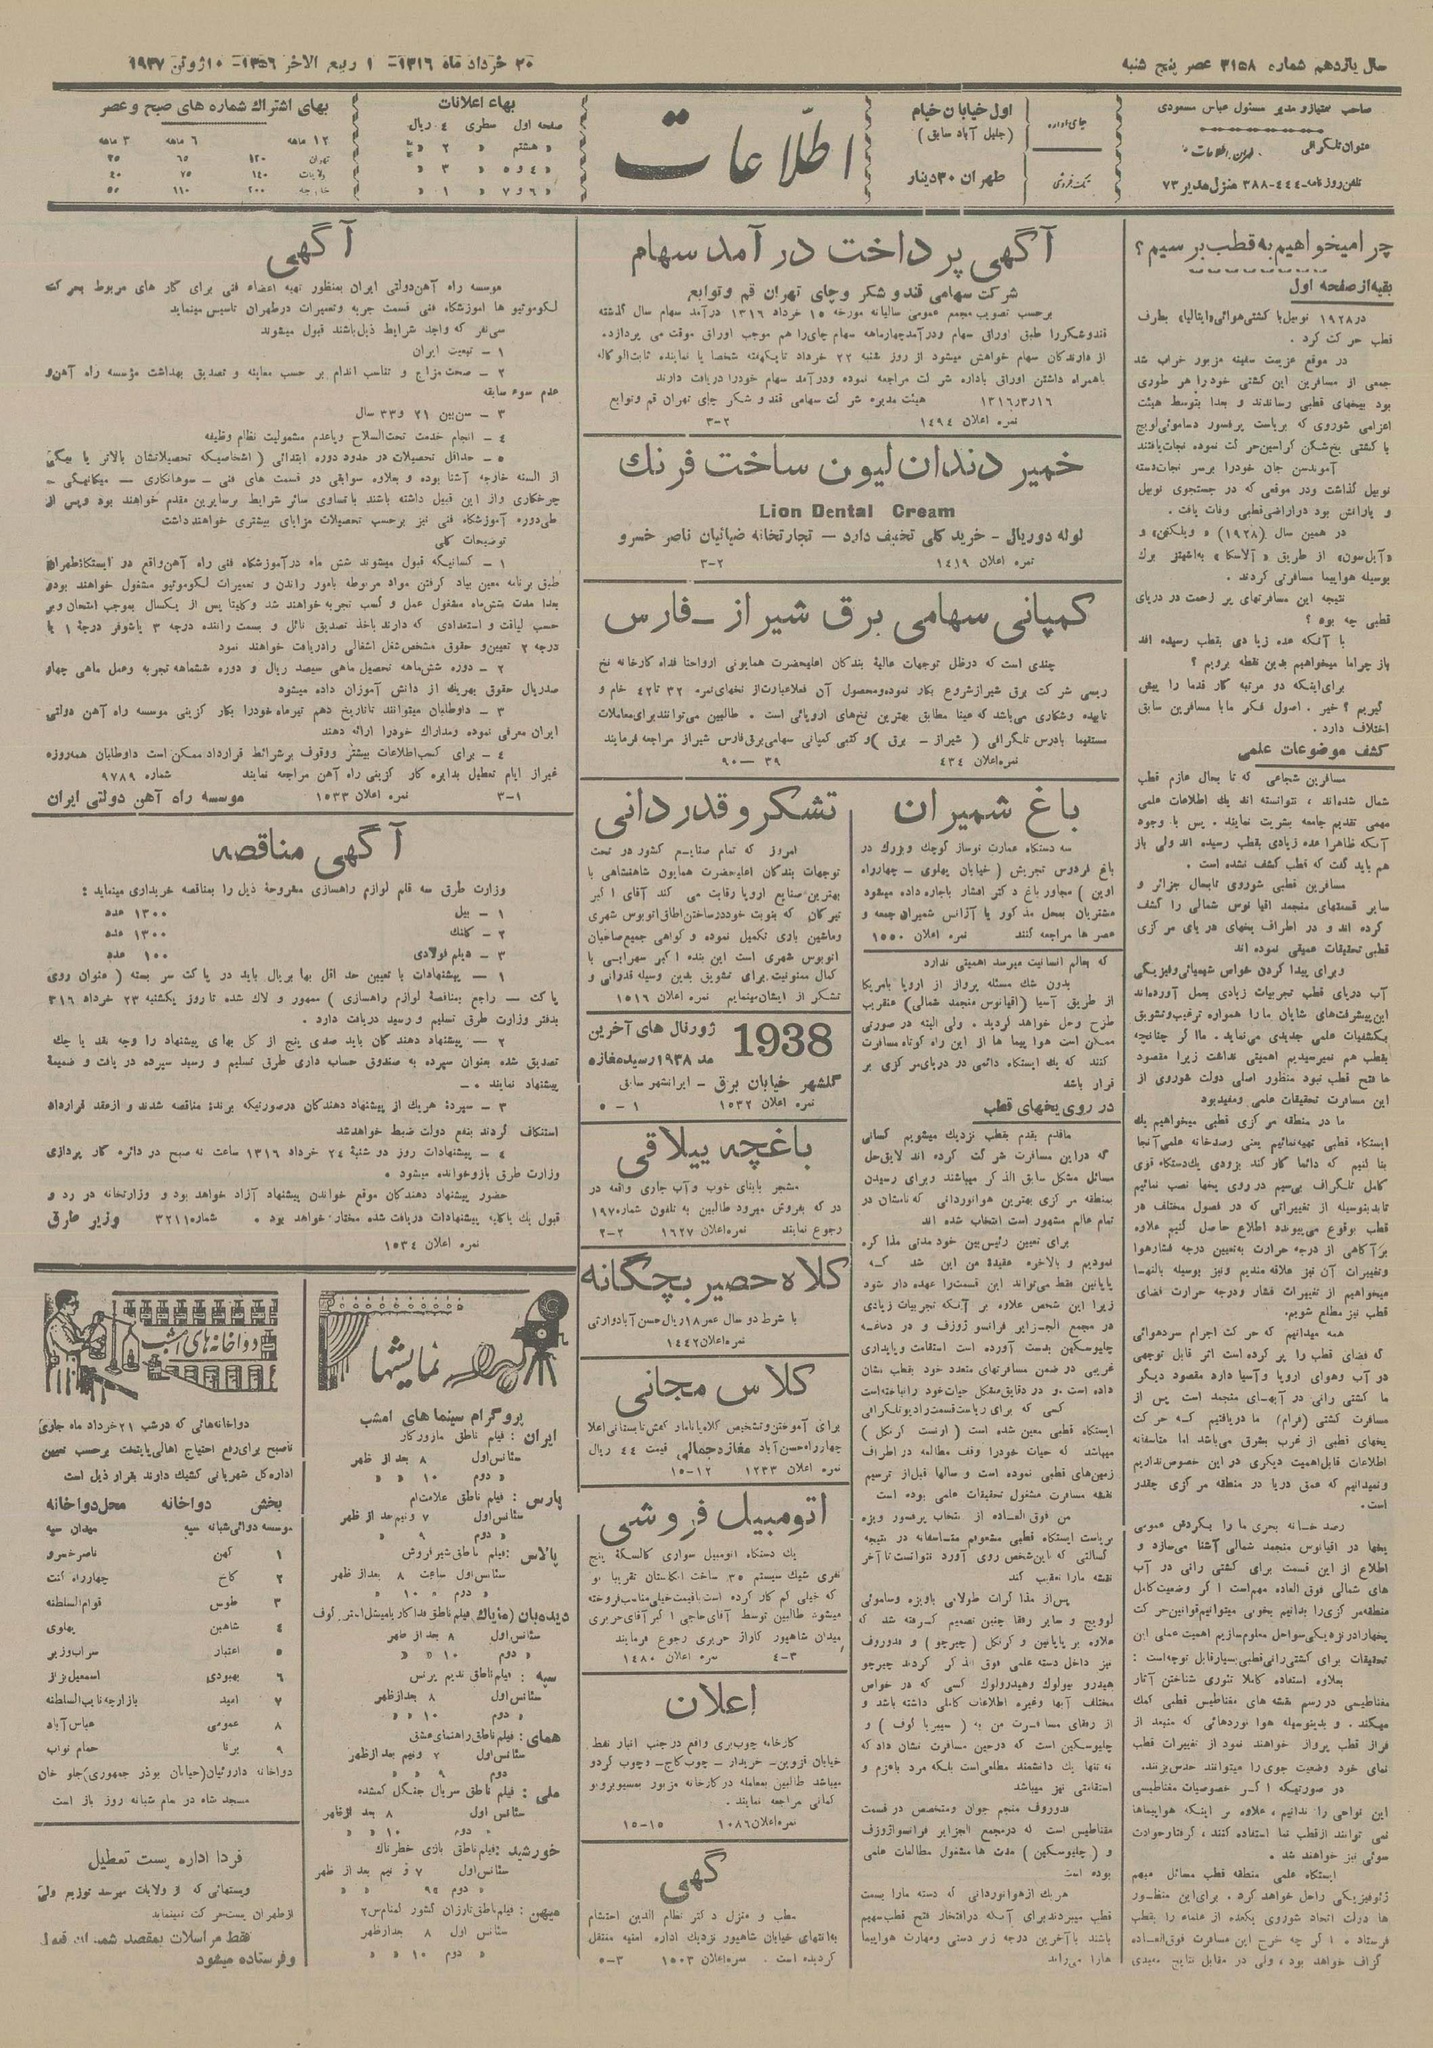 سال یازدهم شماره ۳۱۵۸ عصر پنج شنبه
۲۰ خرداد ماه ۱۳۱۶- ۱ ربیع الاخر ۱۳۵۶- ۱۰ ژوئن ۱۹۳۷
صاحب امتیاز و مدیر مسئول عباس مسعودی
عنوان تلگرافی
طهران اطلاعات
تلفن روزنامه-۴۴۴-۳۸۸ منزل مدیر ۷۳
جای اداره
تکفروشی
اول خیابان خیام
(جلیل آباد سابق)
طهران ۳۰ دینار
اطلاعات
بهاء اعلانات
صفحه اول سطری ۴ ریال
« هشتم « ۲ «
« ۴ و ۵ « ۳ «
« ۶ و ۷ « ۱ «
بهای اشتراك شماره های صبح و عصر
۱۲ ماهه ۶ ماهه ۳ ماهه
تهران ۱۲۰ ۶۵ ۳۵
ولایات ۱۴۰ ۷۵ ۴۰
خارجه ۲۰۰ ۱۱۰ ۵۵
چرا میخواهیم به قطب برسیم؟
بقیه از صفحه اول
در ۱۹۲۸ نوبیل با کشتی هوائی «ایتالیا» بطرف
قطب حرکت کرد .
در موقع عزیمت سفینه مزبور خراب شد
جمعی از مسافرین این کشتی خود را هر طوری
بود بیخهای قطبی رساندند و بعدا بتوسط هیئت
اعزامی شوروی که بریاست پرفسور «ساموئی‌لویچ
با کشتی یخ‌شکن کراسین حرکت نموده نجات یافتند
آموندسن جان خود را برسر نجات دسته
نوبیل گذاشت و در موقعی که در جستجوی نوبیل
و یارانش بود در اراضی قطبی وفات یافت .
در همین سال (۱۹۲۸) « ویلکنس» و
«آیل‌سون» از طریق « آلاسکا » به اشپتز برك
بوسیله هواپیما مسافرتی کردند .
نتیجه این مسافرتهای پر زحمت در دریای
قطبی چه بود ؟
با آنکه عده زیادی بقطب رسیده اند
باز چرا ما میخواهیم بدین نقطه برویم ؟
برای اینکه دو مرتبه کار قدما را پیش
گیریم ؟ خیر . اصول فکر ما با مسافرین سابق
اختلاف دارد .
کشف موضوعات علمی
مسافرین شجاعی که تا بحال عازم قطب
شمال شده‌اند ، نتوانسته اند یك اطلاعات علمی
مهمی تقدیم جامعه بشریت نمایند . پس با وجود
آنکه ظاهرا عده زیادی بقطب رسیده اند ولی باز
هم باید گفت که قطب کشف نشده است .
مسافرین قطبی شوروی تا بحال جزائر و
سایر قسمتهای منجمد اقیانوس شمالی را کشف
کرده اند و در اطراف یخهای دریای مرکزی
قطبی تحقیقات عمیقی نموده اند
و برای پیدا کردن خواص شیمیائی و فیزیکی
آب دریای قطب تجربیات زیادی بعمل آورده‌اند
این پیشرفت‌های شایان ما را همواره ترغیب و تشویق
بکشفیات علمی جدیدی می‌نماید . ما اگر چنانچه
بقطب هم نمیرسیدیم اهمیتی نداشت زیرا مقصود
ما فتح قطب نبود منظور اصلی دولت شوروی از
این مسافرت تحقیقات علمی و مفید بود
ما در منطقه مرکزی قطبی میخواهیم یك
ایستگاه قطبی تهیه نمائیم یعنی رصدخانه علمی آنجا
بنا کنیم که دائما کار کند بزودی یك دستگاه قوی
کامل تلگراف بی‌سیم در روی یخها نصب نمائیم
تا بدینوسیله از تغییراتی که در فصول مختلف در
قطب بوقوع می‌پیوندد اطلاع حاصل کنیم علاوه
بر آگاهی از درجه حرارت به تعیین درجه فشار هوا
و تغییرات آن نیز علاقه مندیم و نیز بوسیله بالنها
میخواهیم از تغییرات فشار و درجه حرارت فضای
قطب نیز مطلع شویم .
همه میدانیم که حرکت اجرام سرد هوائی
که فضای قطب را پر کرده است اثر قابل توجهی
در آب و هوای اروپا و آسیا دارد مقصود دیگر
ما کشتی رانی در آبهای منجمد است پس از
مسافرت کشتی (فرام) ما دریافتیم که حرکت
یخهای قطبی از غرب بشرق می‌باشد اما متاسفانه
اطلاعات قابل اهمیت دیگری در این خصوص نداریم
و نمیدانیم که عمق دریا در منطقه مرکزی چقدر
است .
رصد خانه بحری ما را بگردش عمومی
یخها در اقیانوس منجمد شمالی آشنا می‌سازد و
اطلاع از این قسمت برای کشتی رانی در آب
های شمالی فوق العاده مهم است اگر وضعیت کامل
منطقه مرکزی را بدانیم بخوبی میتوانیم قوانین حرکت
یخها را در نزدیکی سواحل معلوم سازیم اهمیت عملی این
تحقیقات برای کشتی رانی قطبی بسیار قابل توجه است :
بعلاوه استفاده کاملا تئوری شناختن آثار
مغناطیسی در رسم نقشه های مغناطیس قطبی کمك
میکند . و بدینوسیله هوا نوردهائی که منبعد از
فراز قطب پرواز خواهند نمود از تغییرات قطب
نمای خود وضعیت جوی را میتوانند حدس بزنند .
در صورتیکه اگر خصوصیات مغناطیسی
این نواحی را ندانیم ، علاوه بر اینکه هواپیماها
نمی توانند از قطب نما استفاده کنند ، گرفتار حوادث
سوئی نیز خواهند شد .
ایستگاه علمی منطقه قطب مسائل مبهم
ژئوفیزیکی را حل خواهد کرد . برای این منظور
ها دولت اتحاد شوروی یکعده از علماء را بقطب
فرستاد . اگر چه خرج این مسافرت فوق العاده
گزاف خواهد بود ، ولی در مقابل نتایج مفیدی
آگهی پرداخت درآمد سهام
شرکت سهامی قند و شکر و چای تهران قم و توابع
برحسب تصویب مجمع عمومی سالیانه مورخه ۱۵ خرداد ۱۳۱۶ درآمد سهام سال گذشته
قند و شکر را طبق اوراق سهام و درآمد چهارماهه سهام چای را هم بموجب اوراق موقت می پردازد .
از دارندگان سهام خواهش میشود از روز شنبه ۲۲ خرداد تا یکهفته شخصا یا نماینده ثابت الوکاله
باهمراه داشتن اوراق باداره شرکت مراجعه نموده و درآمد سهام خود را دریافت دارند
۱۳۱۶٫۳٫۱۶ هیئت مدیره شرکت سهامی قند و شکر چای تهران قم و توابع
نمره اعلان ۱۴۹۴ ۳-۲
خمیر دندان لیون ساخت فرنك
Lion Dental Cream
لوله دو ریال - خرید کلی تخفیف دارد - تجارتخانه ضیائیان ناصر خسرو
نمره اعلان ۱۴۱۹ ۳-۲
کمپانی سهامی برق شیراز - فارس
چندی است که در ظل توجهات عالیهٔ بندگان اعلیحضرت همایونی ارواحنا فداه کارخانه نخ
ریسی شرکت برق شیراز شروع بکار نموده و محصول آن فعلا عبارت از نخهای نمره ۳۲ تا ۴۲ خام و
تابیده و شکاری می‌باشد که عینا مطابق بهترین نخ‌های اروپائی است . طالبین می‌توانند برای معاملات
مستقیما بآدرس تلگرافی ( شیراز - برق ) و کتبی کمپانی سهامی برق فارس شیراز مراجعه فرمایند
نمره اعلان ۴۳۴ ۳۹ - ۹۰
باغ شمیران
سه دستگاه عمارت نوساز کوچك و بزرك در
باغ فردوس تجریش ( خیابان پهلوی - چهارراه
اوین ) مجاور باغ دکتر افشار باجاره داده میشود
مشتریان بمحل مذکور یا آژانس شمیران جمعه و
عصر ها مراجعه کنند نمره اعلان ۱۵۵۰
که بعالم انسانیت میرسد اهمیتی ندارد
بدون شك مسئله پرواز از اروپا بامریکا
از طریق آسیا (اقیانوس منجمد شمالی) عنقریب
طرح و حل خواهد گردید . ولی البته در صورتی
ممکن است هواپیما ها از این راه کوتاه مسافرت
کنند که یك ایستگاه دائمی در دریای مرکزی بر
قرار باشد
در روی یخهای قطب
ما قدم بقدم بقطب نزدیك میشویم کسانی
که در این مسافرت شرکت کرده اند لایق حل
مسائل مشکل سابق الذکر میباشند و برای رسیدن
بمنطقه مرکزی بهترین هوانوردانی که نامشان در
تمام عالم مشهور است انتخاب شده اند
برای تعیین رئیس بین خود مدتی مذاکره
نمودیم و بالاخره عقیدهٔ من این شد که
پاپانین فقط می‌تواند این قسمت را عهده دار شود
زیرا این شخص علاوه بر آنکه تجربیات زیادی
در مجمع الجزایر فرانسو ژوزف و در دماغه
چلیوسکین بدست آورده است استقامت و پایداری
غریبی در ضمن مسافرتهای متعدد خود بقطب نشان
داده است . و در دقایق مشکل حیات خود را نباخته است
کسی که برای ریاست قسمت رادیو تلگرافی
ایستگاه قطبی معین شده است ( ارنست کرنکل )
میباشد که حیات خود را وقف مطالعه در اطراف
زمین‌های قطبی نموده است و سالها قبل از ترسیم
نقشه مسافرت مشغول تحقیقات علمی بوده است
من فوق العاده از انتخاب پرفسور ویزه
بریاست ایستگاه قطبی مشعوفم متاسفانه در نتیجه
کسالتی که باین شخص روی آورد نتوانست تا آخر
نقشه ما را تعقیب کند
پس از مذاکرات طولانی باویزه و ساموئی
لوویچ و سایر رفقا چنین تصمیم گرفته شد که
علاوه بر پاپانین و کرنکل ( چیرچو ) و فدوروف
نیز داخل دسته علمی فوق الذکر گردند چیرچو
هیدرو بیولوك و هیدرولوك کسی که در خواص
مختلف آبها و غیره اطلاعات کاملی داشته باشد و
از رفقای مسافرت من به ( سیبریاکوف ) و
چلیوسکین است که در حین مسافرت نشان داد که
نه تنها یك دانشمند مطلعی است بلکه مرد باعزم و
استقامتی نیز میباشد
فدوروف منجم جوان و متخصص در قسمت
مقناطیس است که در مجمع الجزایر فرانسواژوزف
و ( چلیوسکین ) مدت ها مشغول مطالعات علمی
بوده است
هر یك از هوانوردانی که دسته ما را بسمت
قطب میبردند برای آنکه در افتخار فتح قطب سهیم
باشند با آخرین درجه زبردستی و مهارت هواپیما
ها را می‌راند
تشکر و قدردانی
امروز که تمام صنایع کشور در تحت
توجهات بندگان اعلیحضرت همایون شاهنشاهی با
بهترین صنایع اروپا رقابت می کند آقای اکبر
تیرکان که بنوبت خود در ساختن اطاق اتوبوس شهری
و ماشین باری تکمیل نموده و گواهی جمیع صاحبان
اتوبوس شهری است این بنده اکبر سهرابی با
کمال ممنونیت برای تشویق بدین وسیله قدردانی و
تشکر از ایشان مینمایم نمره اعلان ۱۵۱۶
1938 ژورنال های آخرین
مد ۱۹۳۸ رسید مغازه
گلشهر خیابان برق - ایرانشهر سابق
نمره اعلان ۱۵۳۲ ۱ - ۵
باغچه ییلاقی
مشجر با بنای خوب و آب جاری واقعه در
درکه بفروش میرود طالبین به تلفون شماره ۱۹۷۰
رجوع نمایند نمره اعلان ۱۶۲۷ ۲-۲
کلاه حصیر بچگانه
با شرط دو سال عمر ۱۸ ریال حسن آباد وارتی
نمره اعلان ۱۴۴۲
کلاس مجانی
برای آموختن و تشخیص کلاه پاناما و کفش تابستانی اعلا
چهارراه حسن آباد مغازه جمالی قیمت ۴۴ ریال
نمره اعلان ۱۲۳۳ ۱۲-۱۵
اتومبیل فروشی
یك دستگاه اتومبیل سواری کالسکهٔ پنج
نفری شیك سیستم ۳۵ ساخت انگلستان تقریبا نو
که خیلی کم کار کرده است با قیمت خیلی مناسب فروخته
میشود طالبین توسط آقای حاجی اکبر آقای حریری
میدان شاهپور گاراژ حریری رجوع فرمایند
۳-۴ نمره اعلان ۱۴۸۰
اعلان
کارخانه چوب‌بری واقع در جنب انبار نفط
خیابان قزوین - خریدار - چوب کاج - و چوب گردو
میباشد طالبین بمعامله در کارخانه مزبور بمسیو برونو
کمانی مراجعه نمایند .
نمره اعلان ۱۰۸۶ ۱۵-۱۵
گهی
مطب و منزل دکتر نظام الدین احتشام
به انتهای خیابان شاهپور نزدیك اداره امنیه منتقل
گردیده است . نمره اعلان ۱۵۰۳ ۳-۵
آگهی
موسسه راه آهن دولتی ایران بمنظور تهیه اعضاء فنی برای کار های مربوط بحرکت
لکوموتیو ها آموزشگاه فنی قسمت جریه و تعمیرات در طهران تاسیس مینماید
سی نفر که واجد شرایط ذیل باشند قبول میشوند
۱ - تبعیت ایران
۲ - صحت مزاج و تناسب اندام بر حسب معاینه و تصدیق بهداشت مؤسسه راه آهن و
عدم سوء سابقه
۳ - سن بین ۲۱ و ۳۳ سال
۴ - انجام خدمت تحت السلاح و یا عدم مشمولیت نظام وظیفه
۵ - حداقل تحصیلات در حدود دوره ابتدائی ( اشخاصیکه تحصیلاتشان بالاتر یا بیکی
از السنه خارجه آشنا بوده و بعلاوه سوابقی در قسمت های فنی - سوهانکاری - میکانیکی -
چرخکاری و از این قبیل داشته باشند با تساوی سائر شرایط بر سایرین مقدم خواهند بود و پس از
طی دوره آموزشگاه فنی نیز برحسب تحصیلات مزایای بیشتری خواهند داشت
توضیحات کلی
۱ - کسانیکه قبول میشوند شش ماه در آموزشگاه فنی راه آهن واقع در ایستگاه طهران
طبق برنامه معین بیاد گرفتن مواد مربوطه بامور راندن و تعمیرات لکوموتیو مشغول خواهند بود
بعدا مدت شش ماه مشغول عمل و کسب تجربه خواهند شد و کلیتا پس از یکسال بموجب امتحان و بر
حسب لیاقت و استعدادی که دارند باخذ تصدیق نائل و بسمت راننده درجه ۳ یا شوفر درجه ۱ یا
درجه ۲ تعیین و حقوق مشخص شغل اشغالی را دریافت خواهند نمود
۲ - دوره شش ماهه تحصیل ماهی سیصد ریال و دوره ششماهه تجربه و عمل ماهی چهار
صد ریال حقوق بهر یك از دانش آموزان داده میشود
۳ - داوطلبان میتوانند تا تاریخ دهم تیرماه خود را بکار گزینی موسسه راه آهن دولتی
ایران معرفی نموده و مدارك خود را ارائه دهند
۴ - برای کسب اطلاعات بیشتر و وقوف بر شرائط قرارداد ممکن است داوطلبان همه روزه
غیر از ایام تعطیل بدایره کار گزینی راه آهن مراجعه نمایند شماره ۹۷۸۹
۱-۳ نمره اعلان ۱۵۳۳ موسسه راه آهن دولتی ایران
آگهی مناقصه
وزارت طرق سه قلم لوازم راهسازی مشروحهٔ ذیل را بمناقصه خریداری مینماید :
۱ - بیل ۱۳۰۰ عدد
۲ - کلنك ۱۳۰۰ عدد
۳ - دیلم فولادی ۱۰۰ عدد
۱ - پیشنهادات با تعیین حد اقل بها بریال باید در پاکت سر بسته ( عنوان روی
پاکت - راجع بمناقصهٔ لوازم راهسازی ) ممهور و لاك شده تا روز یکشنبه ۲۳ خرداد ۳۱۶
بدفتر وزارت طرق تسلیم و رسید دریافت دارد .
۲ - پیشنهاد دهند گان باید صدی پنج از کل بهای پیشنهاد را وجه نقد یا چك
تصدیق شده بعنوان سپرده به صندوق حساب داری طرق تسلیم و رسید سپرده در یافت و ضمیمهٔ
پیشنهاد نمایند .-
۳ - سپردهٔ هریك از پیشنهاد دهندگان در صورتیکه برندهٔ مناقصه شدند و از عقد قرارداد
استنکاف کردند بنفع دولت ضبط خواهد شد
۴ - پیشنهادات روز دو شنبهٔ ۲۴ خرداد ۱۳۱۶ ساعت نه صبح در دائره کار پردازی
وزارت طرق باز و خوانده میشود .
حضور پیشنهاد دهندگان موقع خواندن پیشنهاد آزاد خواهد بود و وزارتخانه در رد و
قبول یك یا کلیه پیشنهادات دریافت شده مختار خواهد بود . شماره ۳۲۱۱ وزیر طرق
نمره اعلان ۱۵۳۴
نمایشها
پروگرام سینماهای امشب
ایران : فیلم ناطق مازورکار
سئانس اول ۸ بعد از ظهر
« دوم ۱۰ « «
پارس : فیلم ناطق علامت ام
سئانس اول ۷ و نیم بعد از ظهر
« دوم ۹ « «
پالاس : فیلم ناطق شیر فروش
سئانس اول ساعت ۸ بعد از ظهر
« دوم « ۱۰ «
سئانس اول ۸ بعد از ظهر
« دوم ۱۰ « «
سپه : فیلم ناطق ندیم پرنس
سئانس اول ۸ بعد از ظهر
« دوم ۱۰ « «
همای : فیلم ناطق راهنمای عشق
سئانس اول ۷ و نیم بعد از ظهر
« دوم ۹ « «
ملی : فیلم ناطق سریال جنگل گمشده
سئانس اول ۸ بعد از ظهر
« دوم ۱۰ « «
خورشید : فیلم ناطق بازی خطرناك
سئانس اول ۷ و نیم بعد از ظهر
« دوم ۹ « «
میهن : فیلم ناطق تارزان کشور لمناس ۲
سئانس اول ۸ بعد از ظهر
« دوم ۱۰ « «
دواخانه‌های امشب
دواخانه‌هائی که در شب ۲۱ خرداد ماه جاری
تا صبح برای رفع احتیاج اهالی پایتخت بر حسب تعیین
اداره کل شهربانی کشیك دارند بقرار ذیل است
بخش دواخانه محل دواخانه
موسسه دوائی شبانه سپه میدان سپه
۱ کهن ناصر خسرو
۲ کاخ چهارراه کنت
۳ طوس قوام السلطنه
۴ شاهین پهلوی
۵ اعتبار سراب وزیر
۶ بهبودی اسمعیل بزاز
۷ امید بازارچه نایب السلطنه
۸ عمومی عباس آباد
۹ برنا حمام نواب
دواخانه داروئیان (خیابان بوذر جمهوری) جلو خان
مسجد شاه در تمام شبانه روز باز است
فردا اداره پست تعطیل
و پستهائی که از ولایات میرسد توزیع ولی
از طهران پست حرکت نمینماید
فقط مراسلات بمقصد
و فرستاده میشود